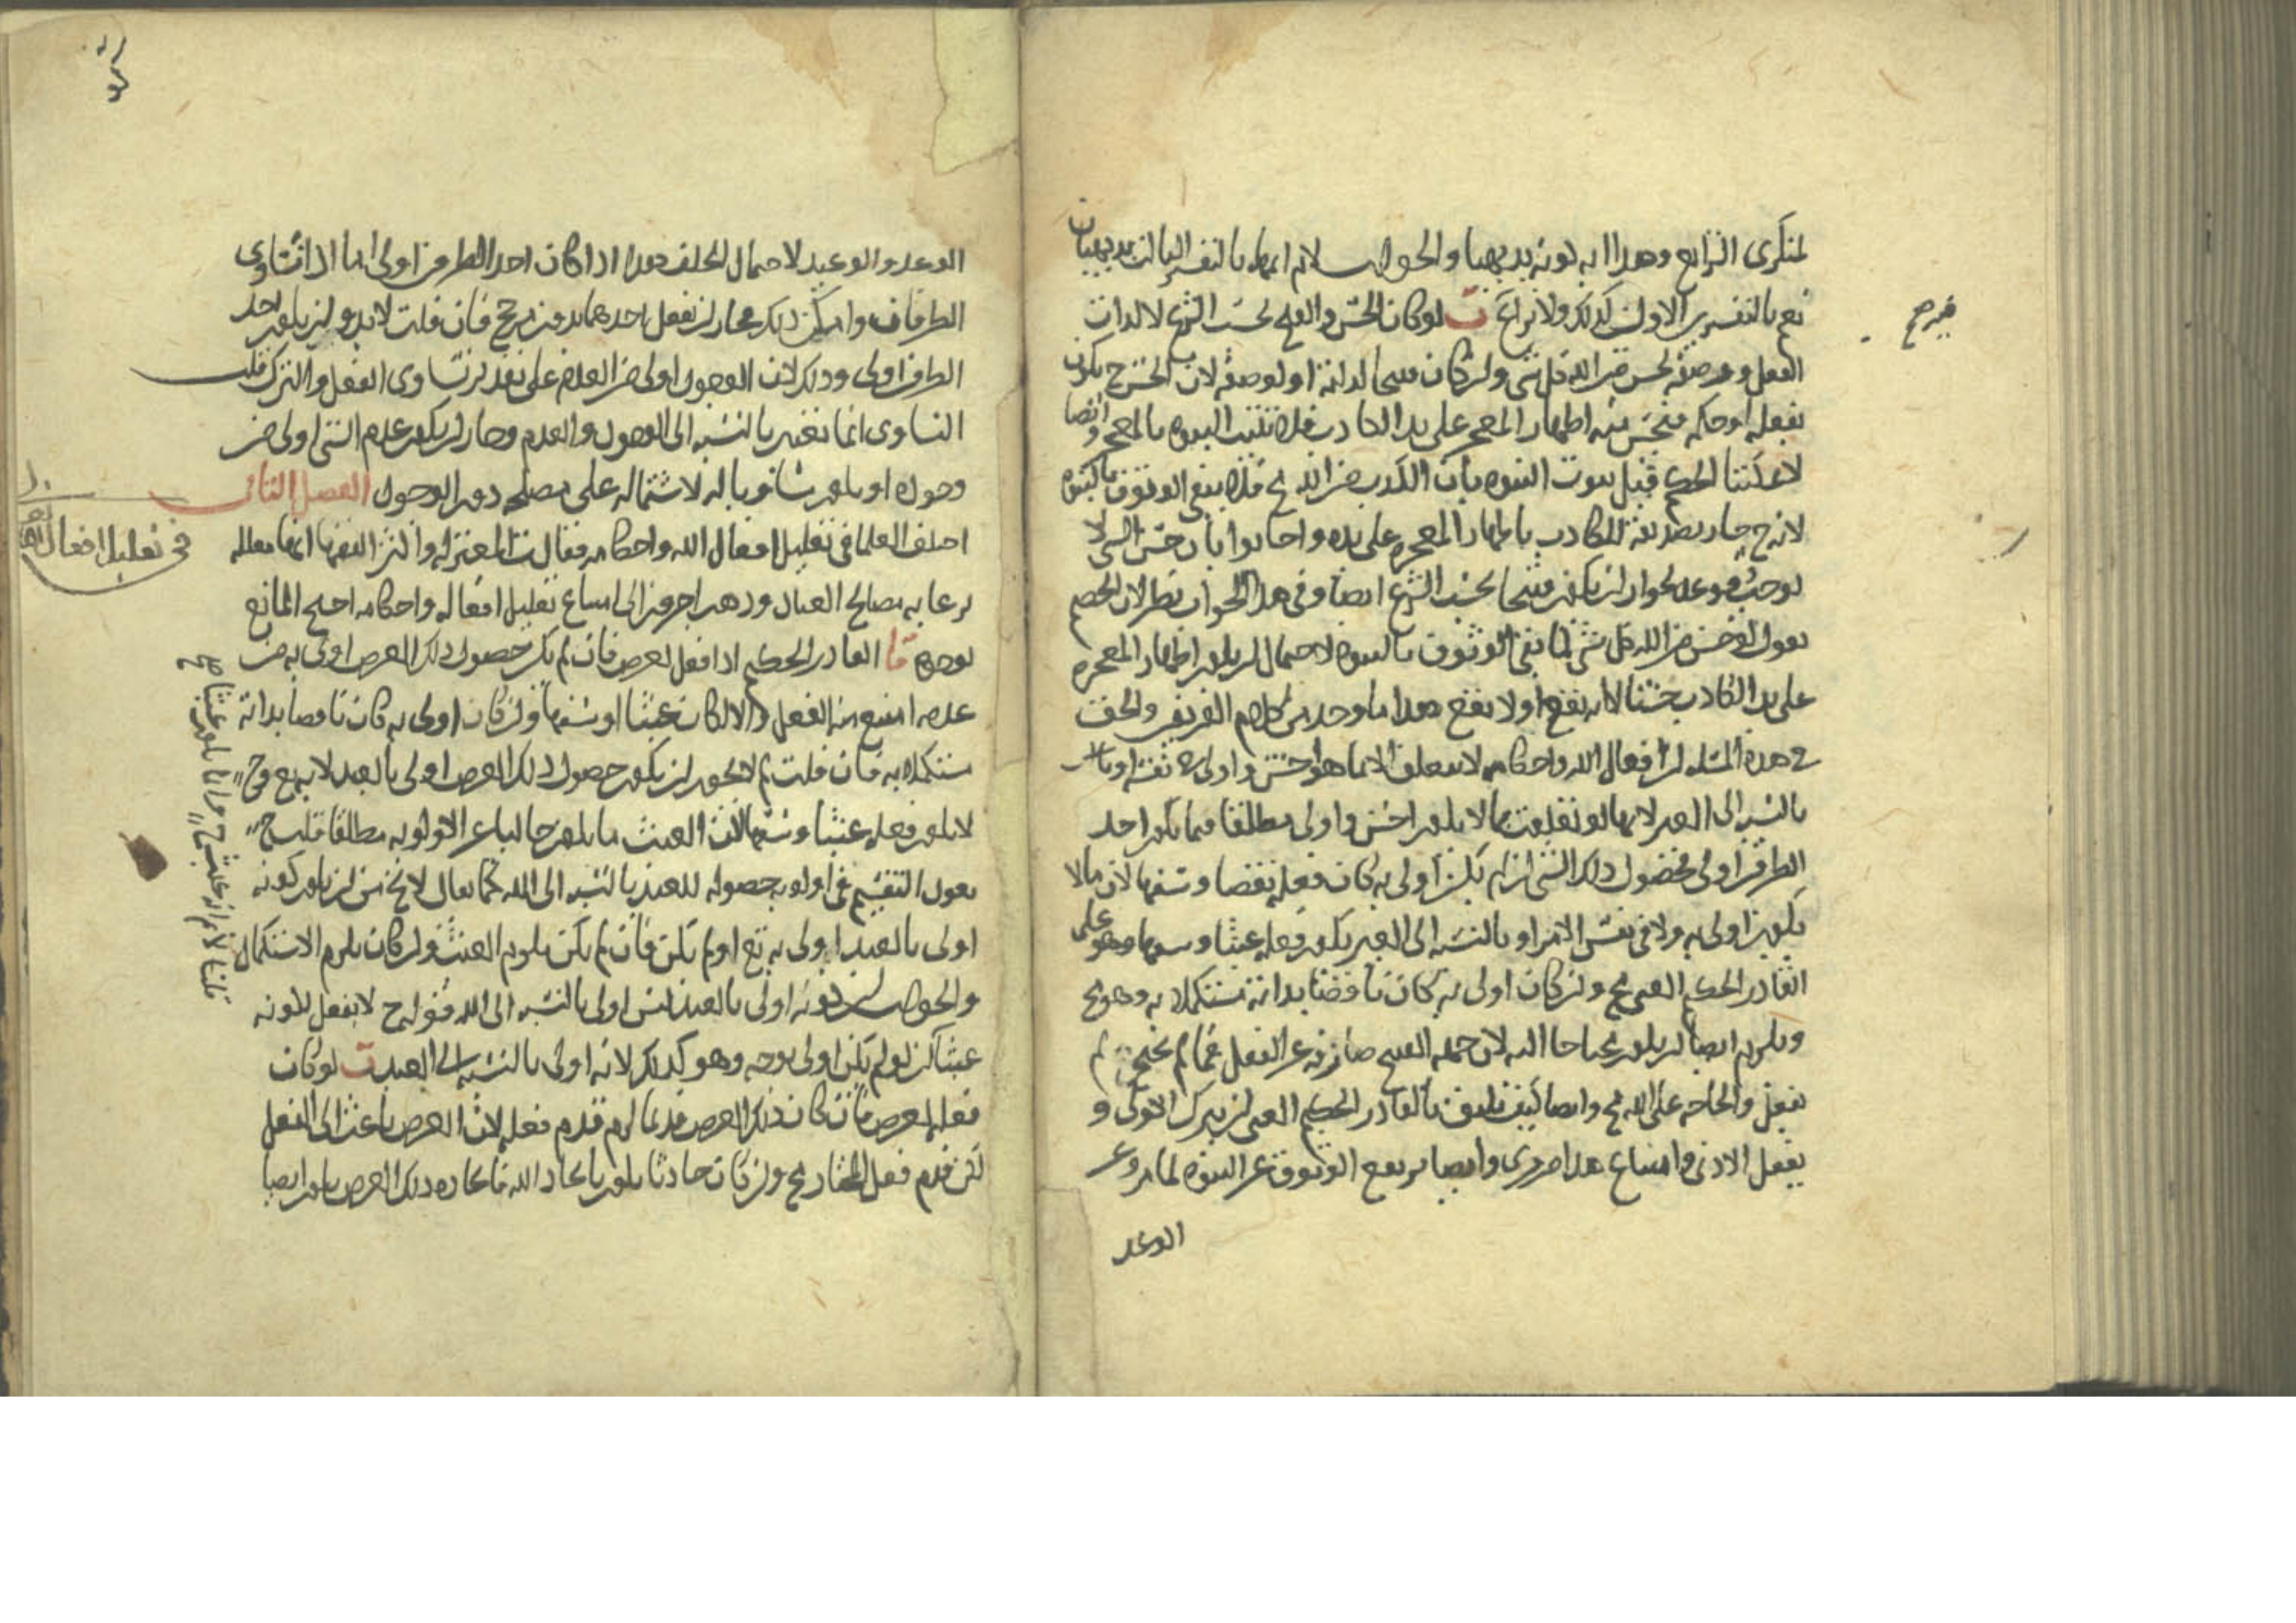 لمنكرى الشرايع وهذا آية كونه بديهيا والجواب لانم انهما بالتفسير الثالث بديهيان
نعم بالتفسيرين الاولين كذلك ولا نزاع ب لو كان الحسن والقبح بحسب الشرع لا لذات
الفعل وصفته لحسن من الله كل شى ولو كان قبيحا لذاته او لوصفه لان الحسن ح يكون
بفعله او حكمه فيحسن منه اظهار المعجز على يد الكاذب فلا تثبت النبوة بالمعجز وايضا
لا يمكننا الحكم قبل ثبوت النبوة بان الكذب من الله مح فلا يبقى الوثوق بالنبوة
لانه ح جاز تصديقه للكاذب باظهار المعجزة على يده واجابوا بان حسن الشى لا
يوجب وقوعه لجواز ان يكون قبيحا بحسب الشرع ايضا وفى هذا الجواب نظر لان الخصم
يقول لو حسن من الله كل شى لما بقى الوثوق بالنبوة لاحتمال ان يكون اظهار المعجزة
على يد الكاذب حسنا لانه يقع او لا يقع هذا ما وجد من كلام الفريقين والحق
فى هذه المسئلة ان افعال الله واحكامه لا تتعلق الا بما هو احسن واولى فى نفسه او
بالنسبة الى العبد لانها لو تعلقت بما لا يكون احسن واولى مطلقا فما يكون احد
الطرفين اولى فحصول ذلك الشى ان لم يكن اولى به كان فعله نقصا وسفها لان ما لا
يكون اولى به ولا فى نفس الامر او بالنسبة الى الغير يكون فعله عبثا وسفها وهو على
القادر الحكيم الغنى مح وان كان اولى به كان ناقصا بذاته مستكملا به وهو مح
ويلزم ايضا ان يكون محتاجا اليه لان جهة القبح صارفة عن الفعل فما لم يحتج لم
يفعل والحاجة على الله مح وايضا كيف يليق بالقادر الحكيم الغنى ان يترك الاولى و
يفعل الادنى وامتناع هذا ضرورى وايضا يرتفع الوثوق عن النبوة لما مر وعن
الوعد
الوعد والوعيد لاحتمال الخلف هذا اذا كان احد الطرفين اولى اما اذا تساوى
الطرفان وامكن ذلك فجاز ان يفعل احدهما بدون مرجح فان قلت لا بد وان يكون احد
الطرفين اولى وذلك لان الوجود اولى من العدم على تقدير تساوى الفعل والترك قلت
التساوى انما يعتبر بالنسبة الى الوجود والعدم وجاز ان يكون عدم الشى اولى من
وجوده او يكون مساويا له لاشتماله على مصلحة دون الوجود الفصل الثانى
فى تعليل افعال الله
اختلف العلما فى تعليل افعال الله واحكامه فقالت المعتزلة واكثر الفقها انها معللة
برعاية مصالح العباد وذهب اخرون الى امتناع تعليل افعاله واحكامه احتج المانع
بوجوه ا القادر الحكيم اذا فعل لغرض فان لم يكن حصول ذلك الغرض اولى به من
عدمه امتنع منه الفعل والا لكان عبثا او سفها وان كان اولى به كان ناقصا بذاته
مستكملا به فان قلت لم لا يجوز ان يكون حصول ذلك الغرض اولى بالعبد لا به تع وح
لا يكون فعله عبثا وسفها لان العبث ما يكون خاليا عن الاولوية مطلقا قلت ح
يعود التقسيم فى اولوية حصوله للعبد بالنسبة الى الله كما يقال لا يخ من ان يكون كونه
اولى بالعبد اولى به تع او لم يكن فان لم يكن يلزم العبث وان كان يلزم الاستكمال
والجواب ان كونه اولى بالعبد ليس اولى بالنسبة الى الله قوله ح لا يفعل لكونه
عبثا لكن لو لم يكن اولى بوجه وهو كذلك لانه اولى بالنسبة الى العبد ب لو كان
فعله لغرض فان كان ذلك الغرض قديما لزم قدم فعله لان الغرض باعث الى الفعل
لكن قدم فعل المختار مح وان كان حادثا يكون بايجاد الله فايجاده ذلك الغرض يكون ايضا